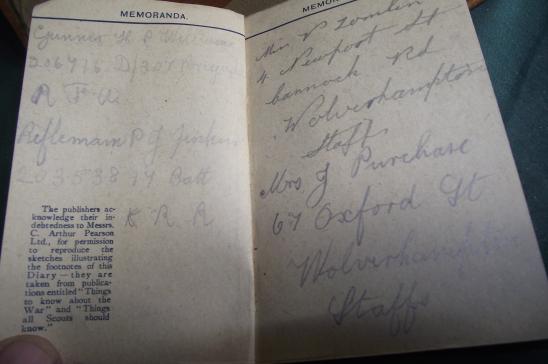 MEMORANDA.
Gunner H P Williams
206716 D/307
R F A
Rifleman P J Jenkins
203538 17 Batt
K R R
The publishers ac-
knowledge their in-
debtedness to Messrs.
C. Arthur Pearson
Ltd., for permission
to reproduce the
sketches illustrating
the footnotes of this
Diary—they are
taken from publica-
tions entitled "Things
to know about the
War" and "Things
all Scouts should
know."
MEMOR
Miss P Tomlin
4 Newport St
Cannock Rd
Wolverhampton
Staffs
Mrs J Purchase
67 Oxford St
Wolverhampton
Staffs